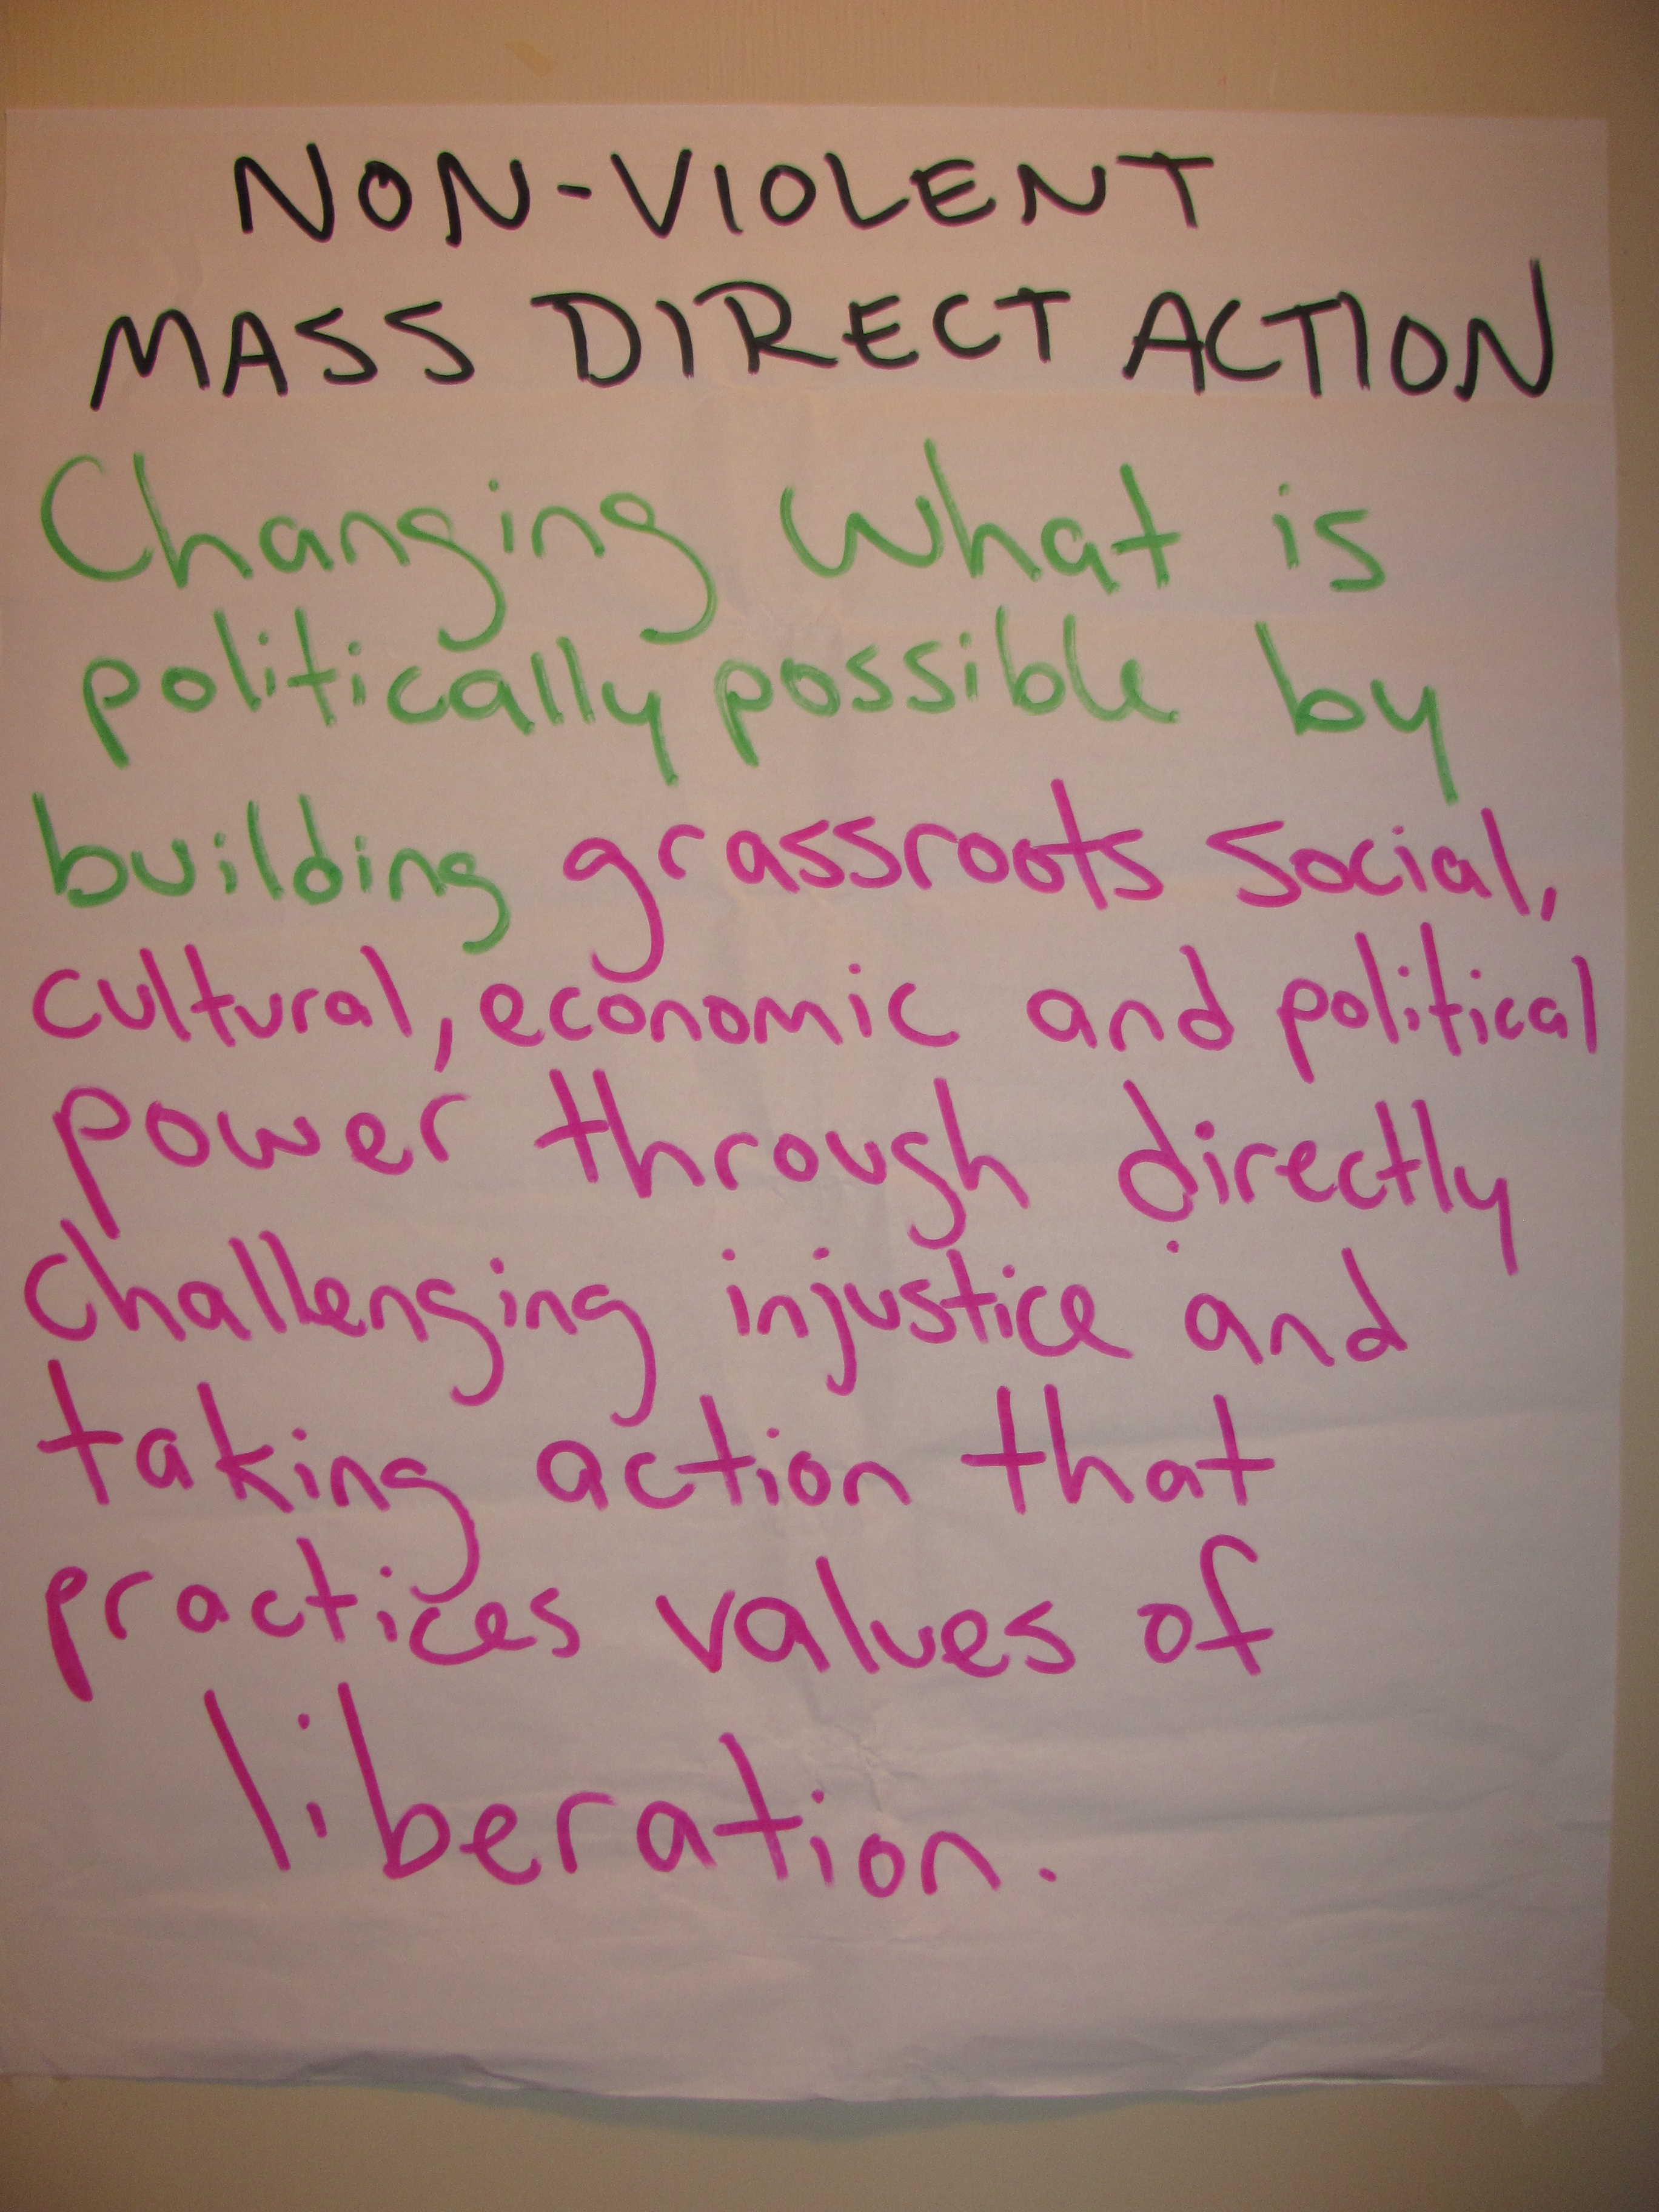 NON-VIOLENT
MASS DIRECT ACTION
Changing what is
politically possible by
building grassroots social,
cultural, economic and political
power through directly
challenging injustice and
taking action that
practices values of
liberation.